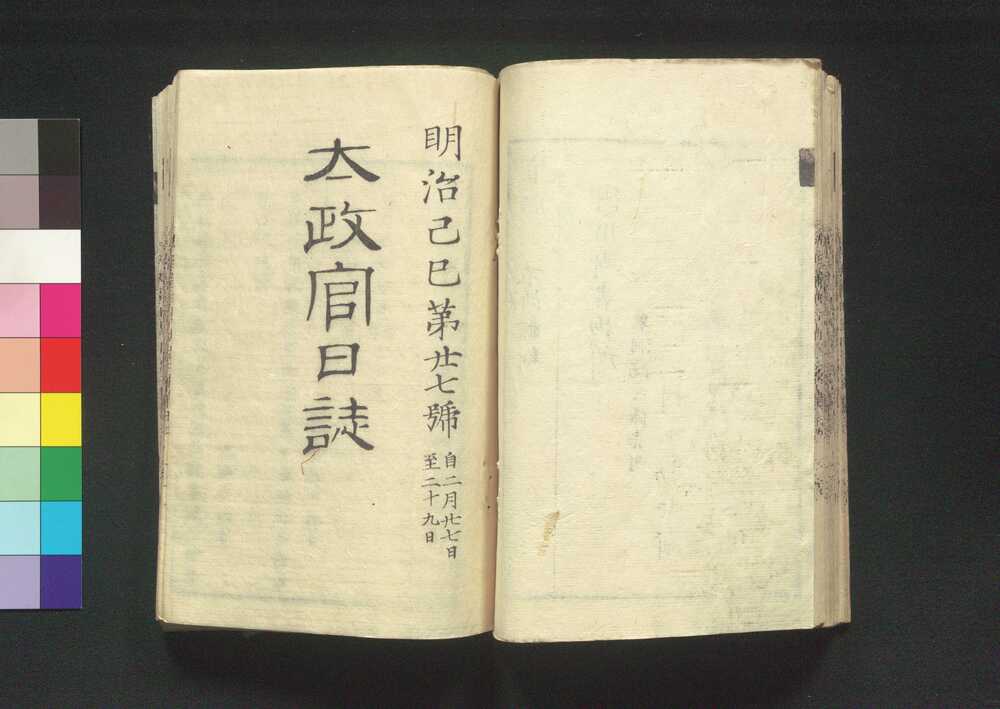 明治己巳第廿七號
自二月廿七日
至二十九日
太政官日誌